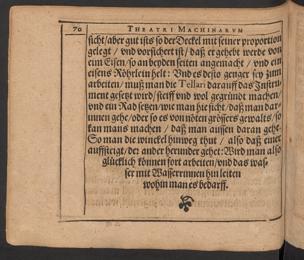 70 THEATRI MACHINARVM
sicht/aber gut ists so der Deckel mit seiner proportion
gelegt / vnd versichert ist/ daß er gehebt werde von
ein Eisen/ so an beyden seiten angemacht / vnd ein
eisens Röhrlein helt: Vnd es desto genger sey zum
arbeiten/ muß man die Tellari darauff das Instru-
ment gesetzt wird/ steiff vnd wol gegründt machen/
vnd ein Rad setzen/wie man hie sicht/ daß man dar-
innen gehe/oder so es von nöten grössers gewalts/ so
kan mans machen / daß man aussen daran gehe.
So man die winckel hinweg thut / also daß einer
auffsteigt/ der ander herunder gehet: Wird man also
glücklich können fort arbeiten/vnd das was-
ser mit Wasserrinnen hin leiten
wohin man es bedarff.